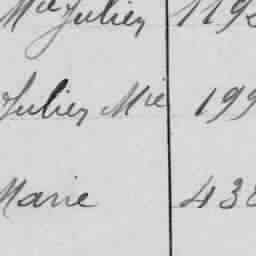 Mie Julien 119
Julien Mie 199
Marie 438